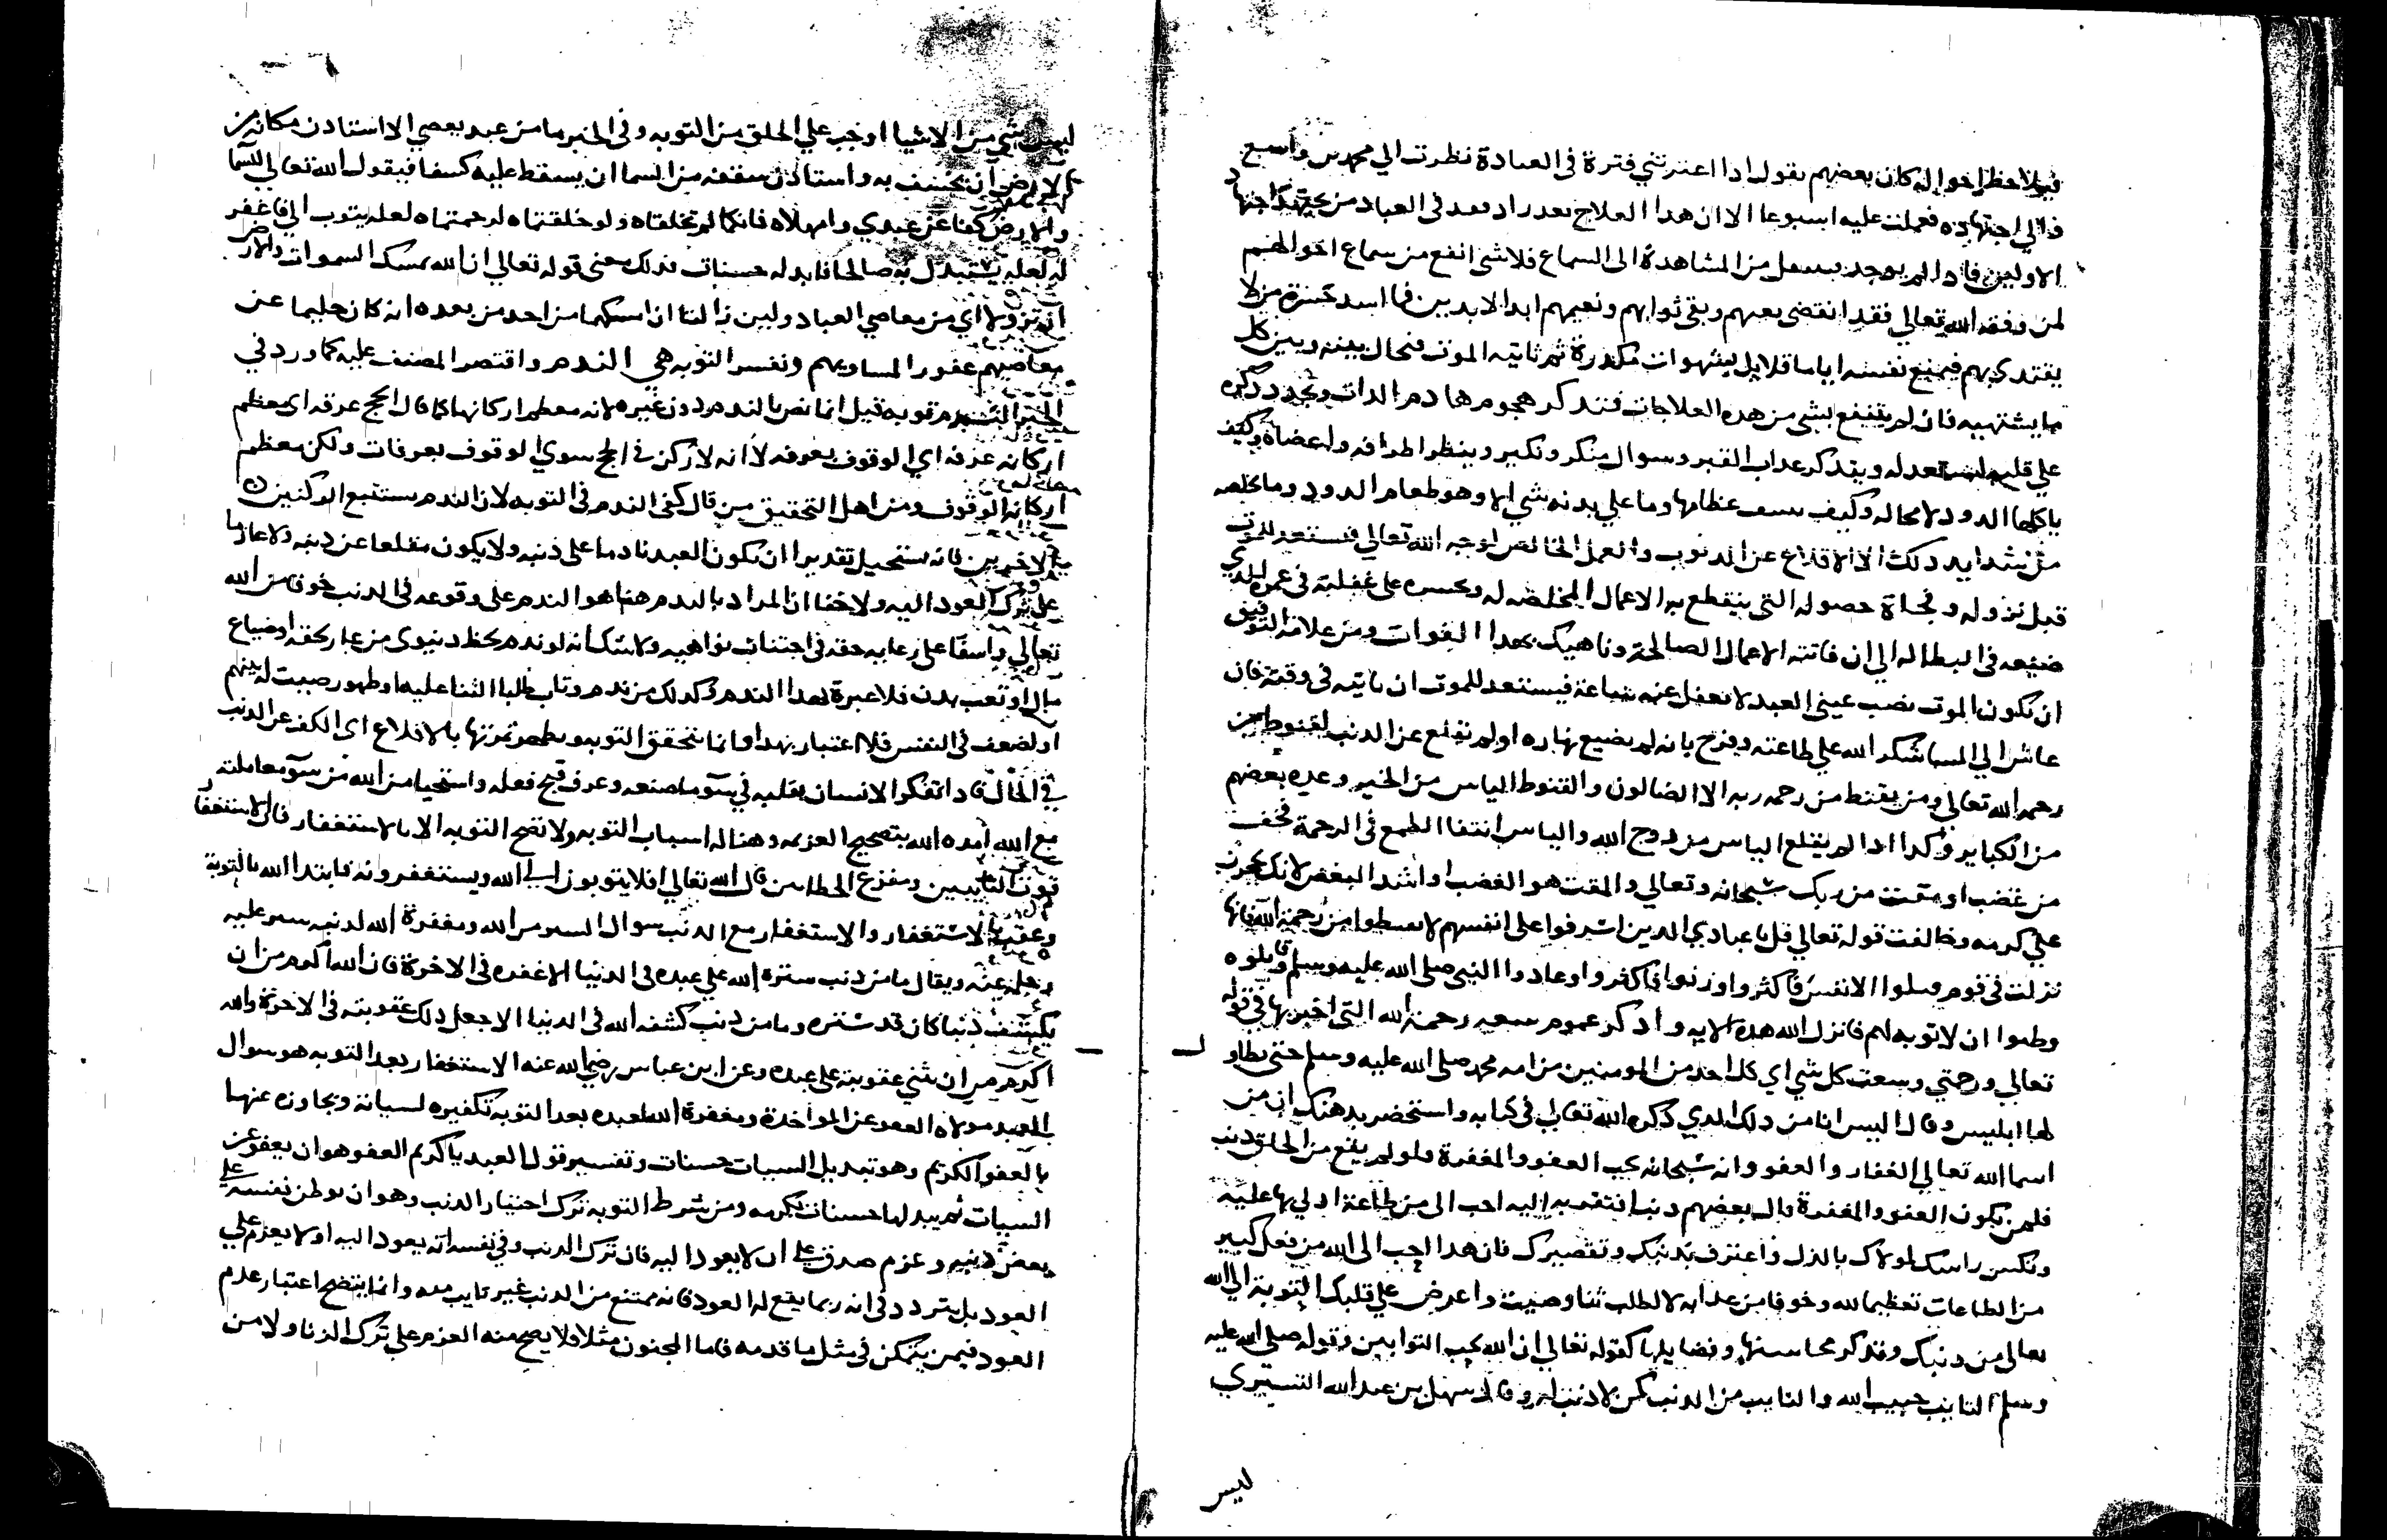 فيلاحظ احوالهم كان بعضهم يقول اذا اعترتني فترة في العبادة نظرت الي محمد بن واسع
والي اجتهاده فعملت عليه اسبوعا الا ان هذا العلاج تعذر اذ فقد في العباد من يجتهد اجتهاد
الاولين فاذا لم يوجد ينتقل من المشاهدة الى السماع فلا شي انفع من سماع احوالهم
لمن وفقه الله تعالي فقد انقضى تعبهم وبقى ثوابهم ونعيمهم ابد الابدين فما اشد حسرة من لا
يقتدي بهم فيمتع نفسه اياما قلايل بشهوات مكدرة ثم ياتيه الموت فيحال بينه وبين كل
ما يشتهيه فان لم ينتفع بشي من هذه العلاجات فتذكر هجوم هادم اللذات وتجدد ذكره
علي قلبه ليستعد له ويتذكر عذاب القبر وسوال منكر ونكير وينظر اطرافه واعضاه وكيف
ياكلها الدود لا محاله وكيف عظامها وما علي بدنه شي الا وهو طعام الدود وما يخلصه
من شدايد ذلك الا الاقلاع عن الذنوب والعمل الخالص لوجه الله تعالي فيستعد للموت
قبل نزوله وفجاة حصوله التي ينقطع به الاعمال المخلصه له ويحسره على غفلته في عمره الذي
ضيعه في البطاله الي ان فاتته الاعمال الصالحة وناهيك بهذا الفوات ومن علامة التوفيق
ان يكون الموت نصب عيني العبد لا يغفل عنه ساعة فيستعد للموت ان ياتيه في وقته فان
عاش الي المسا شكر الله علي طاعته وفرح بانه لم يضيع نهاره او لم تقلع عن الذنب لقنوط من
رحمه الله تعالي ومن يقنط من رحمه ربه الا الضالون والقنوط الياس من الخير وعده بعضهم
من الكباير وكذا اذا لم يقلع الياس من روح الله والياس انتفا الطمع في الرحمة فخف
من غضب او مقت من ربك سبحانه وتعالي والمقت هو الغضب او اشد البغض لانك
علي كرمه وخالفت قوله تعالي قل يا عبادي الذين اسرفوا على انفسهم لا تقنطوا من رحمة الله فانها
نزلت في قوم قتلوا الانفس فاكثروا وزنوا فاكثروا وعادوا النبي صلي الله عليه وسلم وقاتلوه
وظنوا ان لا توبه لهم فانزل الله هذه الايه واذكر عموم سعه رحمة الله التي اخبر بها في قوله
تعالي ورحمتي وسعت كل شي اي كل احد من المومنين من امه محمد صلي الله عليه وسلم حتي تطاول
لها ابليس وقال اليس انا من ذلك الذي ذكره الله تعالي في كتابه واستحضر بذهنك ان من
اسما الله تعالي الغفار والعفو وانه سبحانه يحب العفو والمغفرة ولو لم يقع من الخلق ذنب
فلمن يكون العفو والمغفرة قال بعضهم ذنبا افتقر به اليه احب الي من طاعة ادلي بها عليه
ونكس راسك لمولاك بالذل واعترف بذنبك وتقصيرك فان هذا احب الى الله من فعل كبير
من الطاعات تعظيما لله وخوفا من عذابه لا لطلب ثنا وصيت واعرض علي قلبك التوبة الي الله
تعالى من ذنبك وتذكر محاسنها وفضايلها كقوله تعالي ان الله يحب التوابين وقوله صلي الله عليه
وسلم التايب حبيب الله والتايب من الذنب كمن لا ذنب له وقال سهل بن عبد الله التستري
ليس
ليس شي من الاشيا اوجب علي الخلق من التوبه وفي الخبر ما من عبد يعصي الا استاذن مكانه من
الارض ان يخسف به واستاذن سقفه من السما ان يسقط عليه كسفا فيقول الله تعالي للسما
والارض كفا عن عبدي وامهلاه فانكما لم تخلقاه ولو خلقتماه لرحمتماه لعله يتوب الي فاغفر
له لعله يستبدل به صالحا فابدله حسنات فذلك معنى قوله تعالي ان الله يمسك السموات والارض
ان تزولا اي من معاصي العباد ولين زالتا ان امسكهما من احد من بعده انه كان حليما عن
معاصيهم غفورا لمساويهم ونفس التوبه هي الندم واقتصر المصنف عليه كما ورد في
الخبر الندم توبه قيل انما نص بالندم دون غيره لانه معظم اركانها كما قال الحج عرفه اي معظم
اركانه عرفه اي الوقوف بعرفه لا انه لا ركن في الحج سوي الوقوف بعرفات ولكن معظم
اركانه الوقوف ومن اهل التحقيق من قال كفى الندم في التوبه لان الندم يستتبع الركنين
الاخرين فانه يستحيل تقديرا ان يكون العبد نادما على ذنبه ولا يكون مقلعا عن ذنبه ولا عازما
على ترك العود اليه ولا خفا ان المراد بالندم هنا هو الندم على وقوعه في الذنب خوفا من الله
تعالي واسفا على رعايه حقه في اجتناب نواهيه ولا شك انه لو ندم لحظ دنيوي من عار لحقه او ضياع
مال او تعب بدن فلا عبرة بهذا الندم وكذلك من ندم وتاب طلبا الثنا عليه او ظهور صيت له بينهم
او لضعف في النفس فلا اعتبار بهذا وانما تتحقق التوبه ويظهر ثمرتها بالاقلاع اي الكف عن الذنب
في الحال فاذا تفكر الانسان بقلبه في سوء ما صنعه وعرف قبح فعله واستحيا من الله من سوء معاملته
مع الله امده الله بتصحيح العزيمه وهذا له اسباب التوبه ولا تصح التوبه الا بالاستغفار فالاستغفار
قوت التايبين ومفزع الخطايين قال الله تعالي افلا يتوبون الى الله ويستغفرونه فابتدا الله بالتوبة
وعقبها بالاستغفار والاستغفار مع الذنب سوال الستر من الله ومغفرة الله لذنبه ستره عليه
وحلمه عنه ويقال ما من ذنب ستره الله علي عبده في الدنيا الا غفره في الاخرة فان الله اكرم من ان
يكشف ذنبا كان قد ستره وما من ذنب كشفه الله في الدنيا الا جعل ذلك عقوبته في الاخرة والله
اكرم من ان يثني عقوبته على عبده وعن ابن عباس رضي الله عنه الاستغفار بعد التوبه هو سوال
العبد مولاه العفو عن المواخذة ومغفرة الله لعبده بعد التوبه تكفيره لسياته وتجاوزه عنها
بالعفو الكريم وهو تبديل السيات حسنات وتفسير قول العبد يا كريم العفو هو ان يعفو عن
السيات ثم يبدلها حسنات بكرمه ومن شرط التوبه ترك اختيار الذنب وهو ان يوطن نفسه على
بعض ذنبه وعزم صدق على ان لا يعود اليه فان ترك الذنب وفي نفسه انه يعود اليه او لا يعزم علي
العود بل يتردد في انه ربما يقع له العود فانه ممتنع من الذنب غير تايب منه وانما يتضح اعتبار عدم
العود فيمن يتمكن في مثل ما قدمه فاما المجنون مثلا فلا يصح منه العزم علي ترك الزنا ولا من